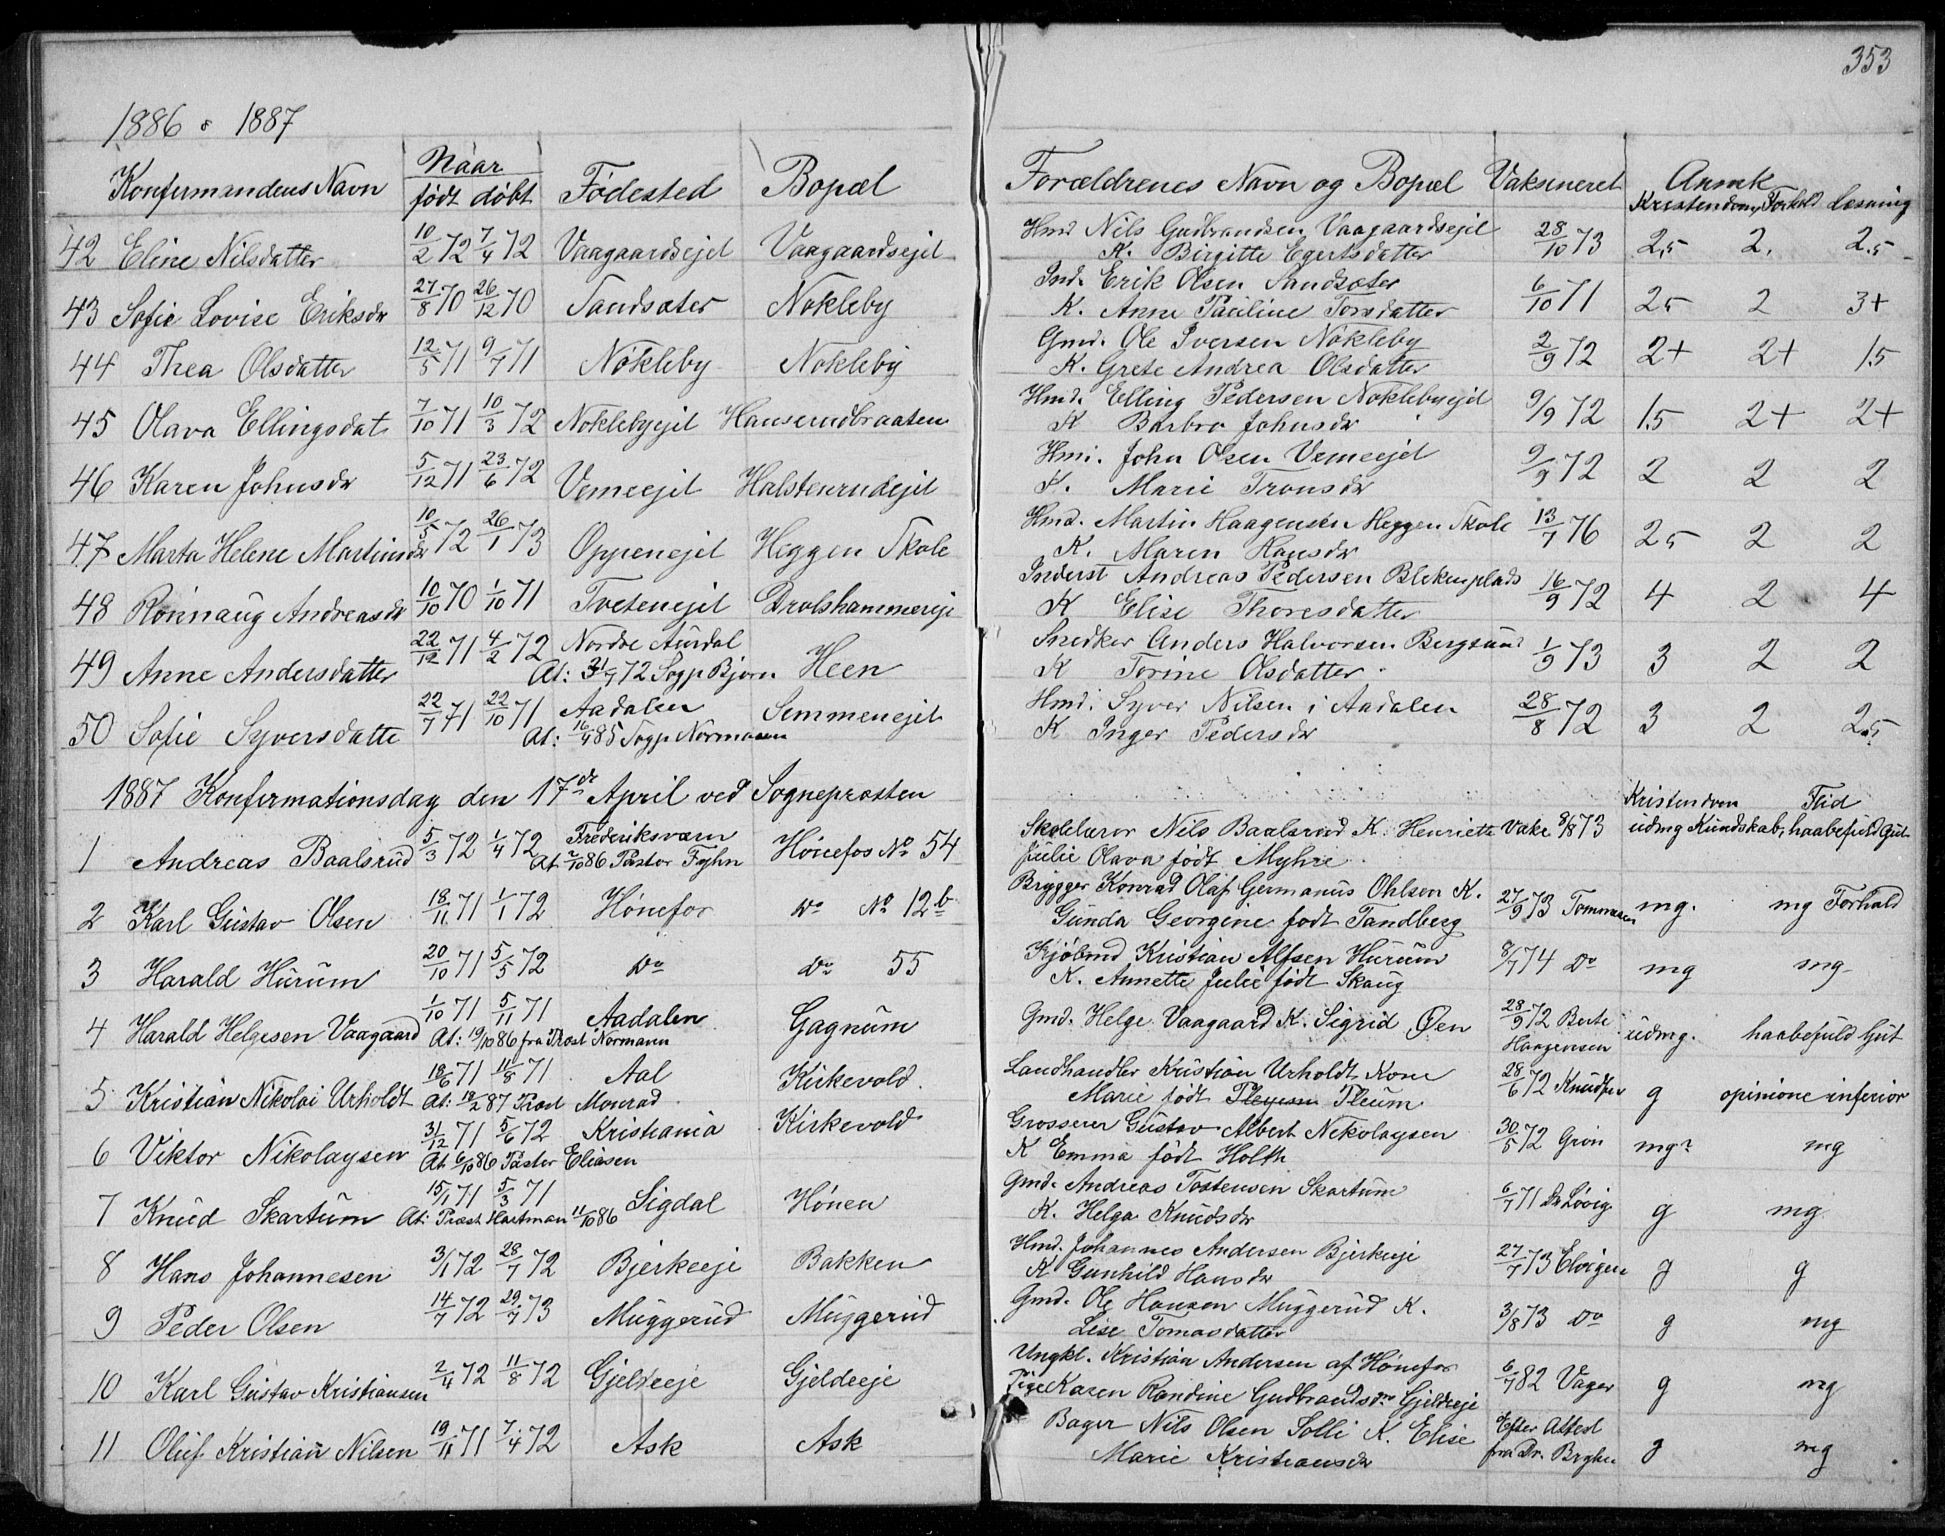 353
1886 & 1887
Konfirmandens Navn Naar født døbt Fødested Bopæl Forældrenes Navn og Bopæl Vaksineret Anmk Kristendom, Forhold Læsning
42 Eline Nilsdatter 10/2 72 7/4 72 Vaagaardsejet Vaagaardsejet Hmd Nils Gudbrandsen Vaagaardsejet 28/10 73 2,5 2. 2.5
K. Birgitte Egertsdatter
43 Sofie Lovise Eriksdr 27/8 70 26/12 70 Sandsæter Nøkleby Ind. Erik Olsen Sandsæter 6/10 71 2,5 2 3+
K. Anne Pauline Torsdatter
44 Thea Olsdatter 12/5 71 9/7 71 Nøkleby Nøkleby Gmd. Ole Iversen Nøkleby 2/9 72 2+ 2+ 1,5
K. Grete Andrea Olsdatter
45 Olava Ellingsdat 7/10 71 10/3 72 Nøklebyejet Hanserudbraaten Hmd. Elling Pedersen Nøklebyejet 9/9 72 1.5 2+ 2+
K Barbro Johnsdr
46 Karen Johnsdr 5/12 71 23/6 72 Vemeejet Halstenrudejet Hmd. John Olsen Vemeejet 9/9 72 2 2 2
K. Marie Tronsdr
47 Marta Helene Martinsdr 10/5 72 26/1 73 Oppenejet Heggen Skole Hmd. Martin Haagensen Heggen Skole 13/7 76 2,5 2 2
K. Maren Hansdr
48 Rønnaug Andreasdr 10/10 70 1/10 71 Tvetenejet Drolshammereje Inderst Andreas Pedersen Blekenplads 16/9 72 4 2 4
K Elise Thoresdatter
49 Anne Andersdatter 22/12 71 4/2 72 Nordre Aurdal Heen Snedker Anders Halvorsen Bergsund 1/9 73 3 2 2
At: 21/7 72 Sogp Bjørn K Torine Olsdatter
50 Sofie Syversdatte 22/7 71 22/10 71 Aadalen Semmenejet Hmd. Syver Nilsen i Aadalen 28/8 72 3 2 2,5
At: 16/4 85 Sogp Normann K Inger Pedersdr
1887 Konfirmationsdag den 17de April ved Sogneprosten Kristendom Flid
1 Andreas Baalsrud 5/3 72 1/4 72 Frederiksværn Hønefos No 54 Skolelærer Nils Baalsrud K. Henriette Vake 9/8 73 udmg Kundskab, haabefuld Gut
At 2/10 86 Pastor Fyhn Julie Olava født Myhre
2 Karl Gustav Olsen 18/11 71 1/1 72 Hønefos Do No 12b Brygger Konrad Olaf Germanus Ohlson K. 27/9 73 Tommesen mg. mg Forhold
Gunda Georgine født Tandberg
3 Harald Hurum 20/10 71 5/5 72 Do Do 55 Kjøbmd Kristian Alfsen Hurum 8/7 74 Do mg mg
K. Annette Julie født Skaug
4 Harald Helgesen Vaagaard 1/10 71 5/11 71 Aadalen Gagnum Gmd. Helge Vaagaard K. Sigrid Øen 28/9 72 Berte Haagensen udmg. haabefuld Gut
At: 19/10 86 fra Prost Normann
5 Kristian Nikolai Urholdt 18/6 71 11/8 71 Aal Kirkevold. Landhandler Kristian Urholdt Kone 28/6 72 Knudsen g opinione inferior
At: 18/2 87 Prost Monrad Marie født Pleum
6 Viktor Nikolaysen 31/12 71 5/6 72 Kristiania Kirkevold Grosserer Gustav Albert Nikolaysen 30/5 72 Grøn mg? mg
At 6/10 86 Pastor Eliasen K Emma født Holth
7 Knud Skartum 15/1 71 5/3 71 Sigdal Hønen Gmd. Andreas Tostensen Skartum 6/7 71 Dr Løvig g mg
At: Prost Hartman 11/10 86 K. Helga Knudsdr
8 Hans Johannesen 3/1 72 28/7 72 Bjerkeeje Bakken Hmd. Johannes Andersen Bjerkeeje 27/7 73 Elvigen g g
K Gunhild Hansdr
9 Peder Olsen 14/7 72 29/7 73 Muggerud Muggerud Gmd. Ole Hansen Muggerud K. 3/8 73 Do g mg
Lise Tomasdatter
10 Karl Gustav Kristiansen 2/4 72 11/8 72 Gjeldeeje Gjeldeeje Ungkl. Kristian Andersen af Hønefos 6/7 82 Vager g mg
Pige Karen Randine Gudbrandsdr Gjeldeeje
11 Oluf Kristian Nilsen 19/11 71 7/4 72 Ask Ask Bager Nils Olsen Solli K. Elise Efter Attest g mg
Marie Kristiansdr fra Dr. Bryhn